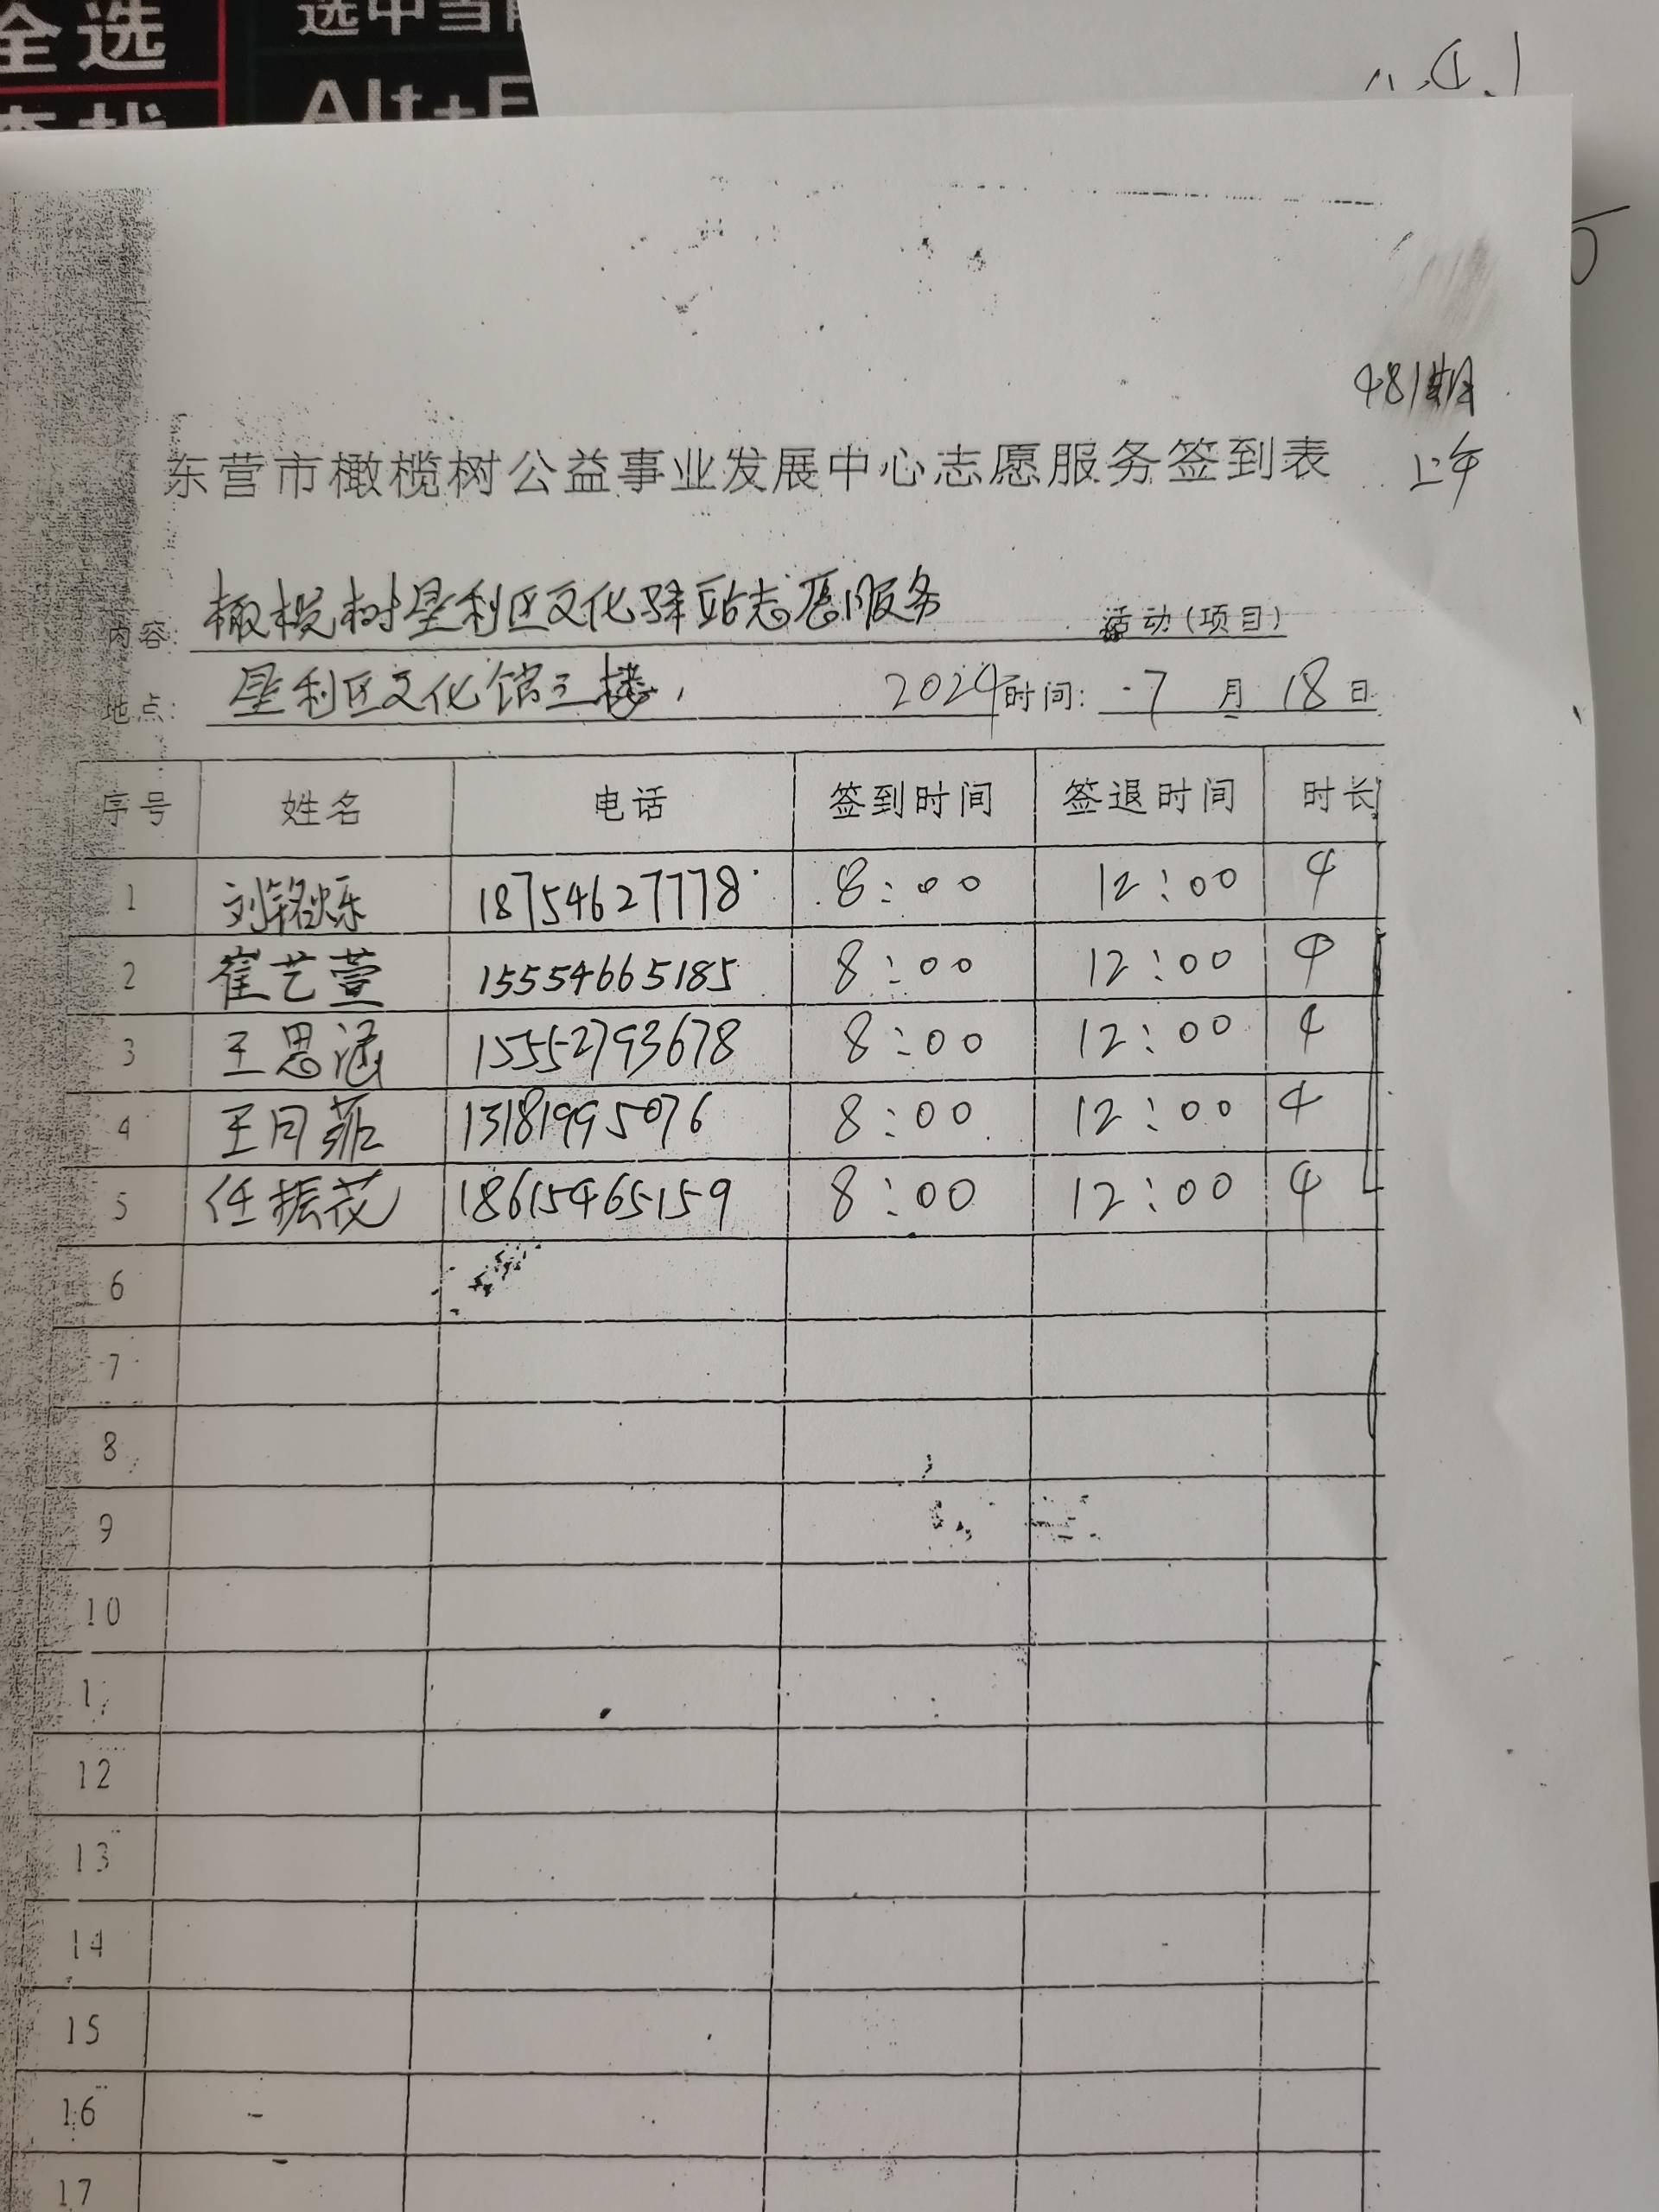 全选
选中当
Alt+F
481期
东营市橄榄树公益事业发展中心志愿服务签到表 上午
内容: 橄榄树垦利区文化驿站志愿服务 活动(项目)
地点: 垦利区文化馆三楼 2024时间: 7月18日
序号 姓名 电话 签到时间 签退时间 时长
1 刘铭烁 18754627778 8:00 12:00 4
2 崔艺萱 15554665185 8:00 12:00 4
3 王思涵 15552793678 8:00 12:00 4
4 王月菲 13181995076 8:00 12:00 4
5 任振花 18615465159 8:00 12:00 4
6
7
8
9
10
1
12
13
14
15
16
17